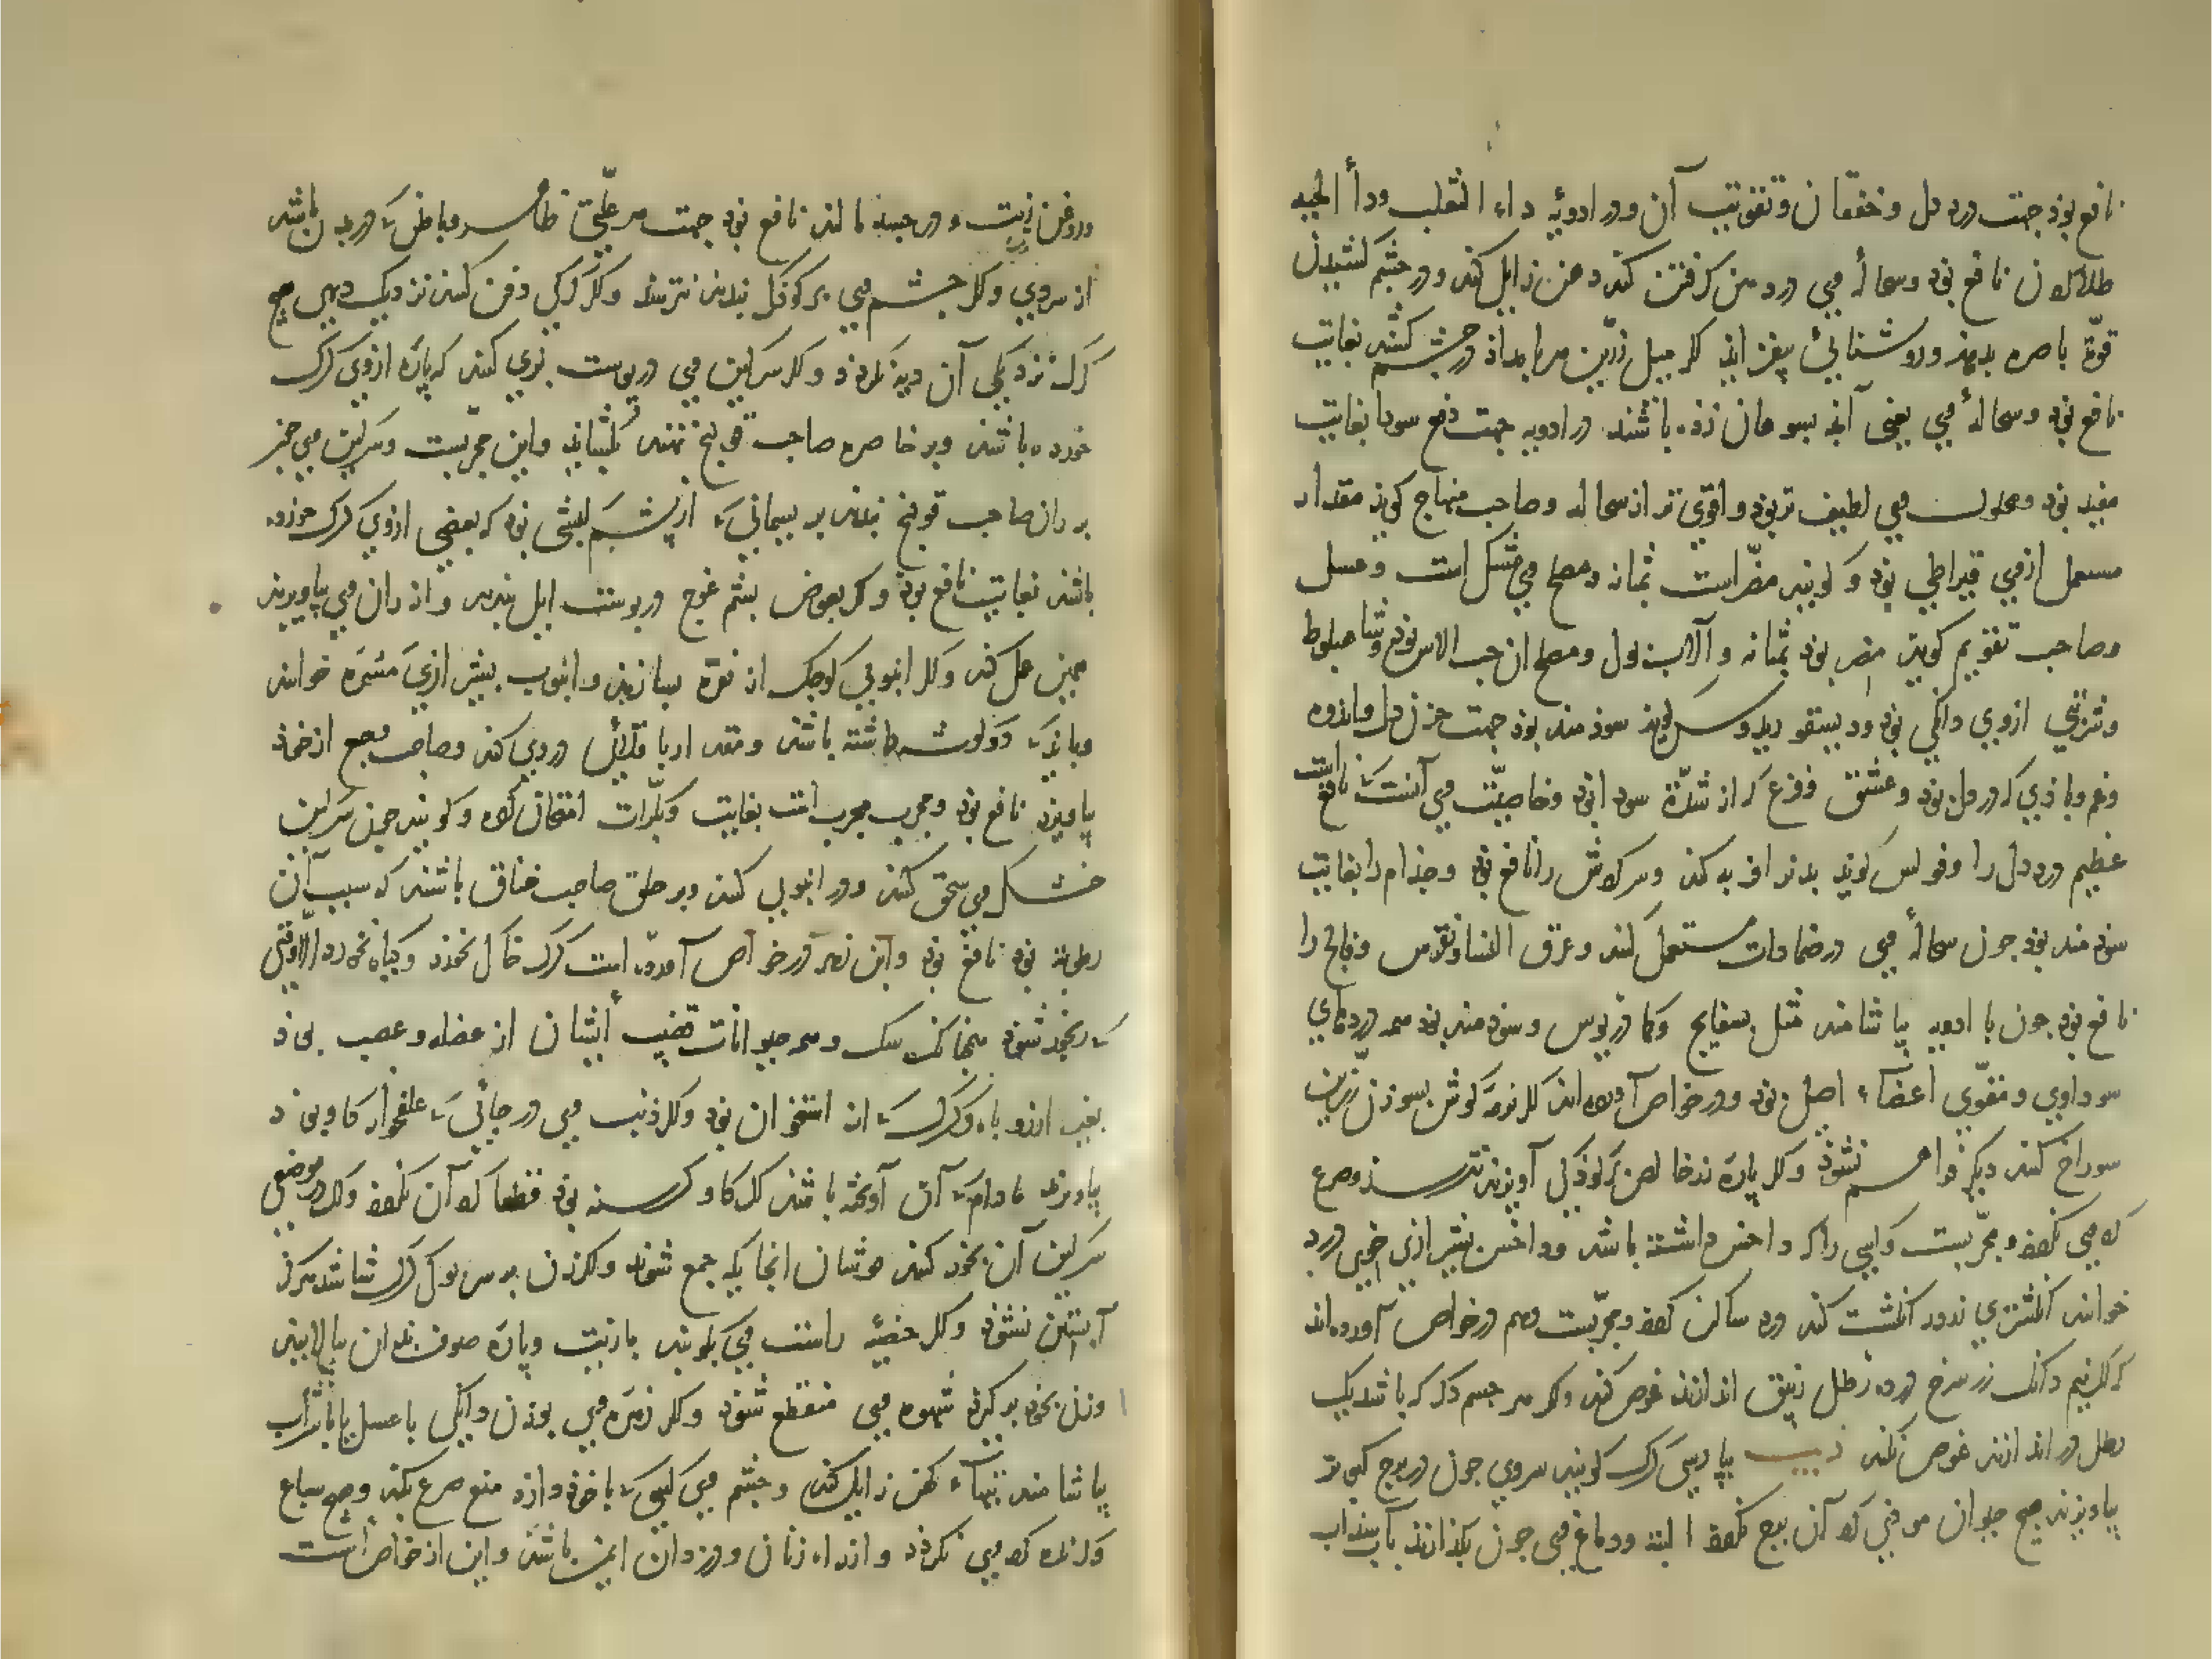 نافع بود جهت درد دل و خفقان و تقویت آن و در ادویه داء الثعلب و داء الحیه
طلا کردن نافع بود و سحاله وی در دهن گرفتن گند دهن زایل کند و در چشم کشیدن
قوة باصره بدهد و روشنائی بیفزاید و اگر بمیل زرین مداد در چشم کشند بغایت
نافع بود و سحاله وی یعنی آنچه بسوهان زده باشند در ادویه جهت دفع سودا بغایت
مفید بود و محلول وی لطیف تر بود و اقوی تر از سحاله و صاحب منهاج گوید مقدار
مستعمل از وی قیراطی بود و گویند مضر است بمثانه و مصلح وی مشک است و عسل
و صاحب تقویم گوید مضر بود بمثانه و آلات بول و مصلح آن حب الاس بود و شاه بلوط
و شربتی از وی دانگی بود و دیسقوریدوس گوید سودمند بود جهت حزن دل و اندوه
و غم و بادی که در دل بود و عشق و فزع که از شدة سودا بود و خاصیت وی آنست که نافع است
عظیم درد دل را و فولس گوید بدن را فربه کند و سرگوش را نافع بود و جذام را بغایت
سودمند بود چون سحاله وی در ضمادات مستعمل کنند و عرق النسا و نقرس و فالج را
نافع بود چون با ادویه بیاشامند مثل بسفایج و کمادریوس و سودمند بود همه دردهای
سوداوی و مقوی اعضاء اصل بود و در خواص آورده اند که اگر نرمه گوش بسوزن زرین
سوراخ کنند دیگر فراهم نشود و اگر پاره زر خالص بر کودکی آویزند نترسد و صرع
که وی نکند و مجربست و کسی را که داخس داشته باشد و داخس بشیرازی خوی درد
خوانند انگشتری زر در انگشت کند درد ساکن کند و مجربست و هم در خواص آورده اند
که اگر نیم دانگ زر سرخ در ده رطل زیبق اندازند غوص کند و اگر هر جسم دیگر که باشد یک
رطل در اندازند غوص نکند ذیب بپارسی گرگ گویند سر وی چون در برج کبوتر
بیاویزند هیچ حیوان موذی گرد آن برج نگردد البته و دماغ وی چون بگدازند بآب سداب
و روغن زیت و در جسد مالند نافع بود جهت هر علتی ظاهر و باطن که در بدن باشد
از سردی و اگر چشم وی بر کودکی بندند نترسد و اگر گرگی دفن کنند نزدیک دیهی هیچ
گرگ نزدیکی آن دیه نگردد و اگر سرگین وی در پوست بزی کنند که پاره از وی گرگ
خورده باشد و بر خاصره صاحب قولنج بندند بگشاید و این مجربست و سرگین وی چون
بر ران صاحب قولنج بندند بریسمانی که از پشم میشی بود که بعضی از وی گرگ خورده
باشد بغایت نافع بود و اگر بعوض پشم غوچ در پوست ایل بندند و از ران وی بیاویزند
همین عمل کند و اگر انبوبی کوچک از نقره بسازند و انبوب بشیرازی مسره خوانند
و باید که دو گوشه داشته باشد و مقدار باقلائی در وی کند و صاحب وجع از خود
بیاویزد نافع بود و مجرب است بغایت و بکرات امتحان کرده و گویند چون سرگین
خشک وی سحق کنند و در انبوبی کنند و بر حلق صاحب خناق باشند که سبب آن
رطوبة بود نافع بود و این نیز در خواص آورده است گرگ خاک نخورد و گیاه نخورد الا وقتی
که رنجور شود همچنانکه سگ و همه حیوانات قضیب ایشان از عضله و عصب بود
بغیر از روباه و گرگ که از استخوان بود و اگر ذنب وی در جائی که علفخوار گاو بود
بیاویزند مادام که آن آویخته باشد اگر گاو گرسنه بود قطعا گرد آن نگردد و اگر در موضعی
سرگین آن بخور کنند موشان آنجایگه جمع شوند و اگر زن بر سر بول گرگ شاشد هرگز
آبستن نشود و اگر خصیه راست وی بکوبند با زیت و پاره صوف بدان بیالایند
و زن بخود برگیرد شهوه وی منقطع شود و اگر زهره وی بوزن دانگی با عسل یا با شراب
بیاشامند تبهاء کهن زایل کند و چشم وی کسی که با خود دارد منع صرع بکند و هیچ سباع
و گزنده گرد وی نگردد و از داء زنان و دزدان ایمن باشد و این از خواص است